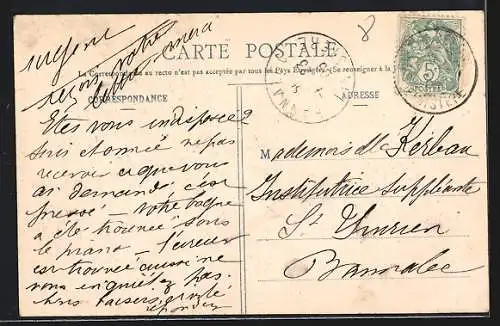 urgent
votre
CARTE POSTALE
La Correspondance au recto n'est pas acceptée par tous les Pays Étrangers (Se renseigner à la
8
5
FINISTERE
CORRESPONDANCE
ADRESSE
Etes vous indisposée ?
suis étonnée pas
recevoir ce que vous
ai demandé c'est
pressé votre bague
a été trouvée sous
le piano
est trouvée aussi ne
vous inquiétez pas.
bons baisers
répondez
Mademoiselle Kerbau
Institutrice suppléante
St
Bannalec